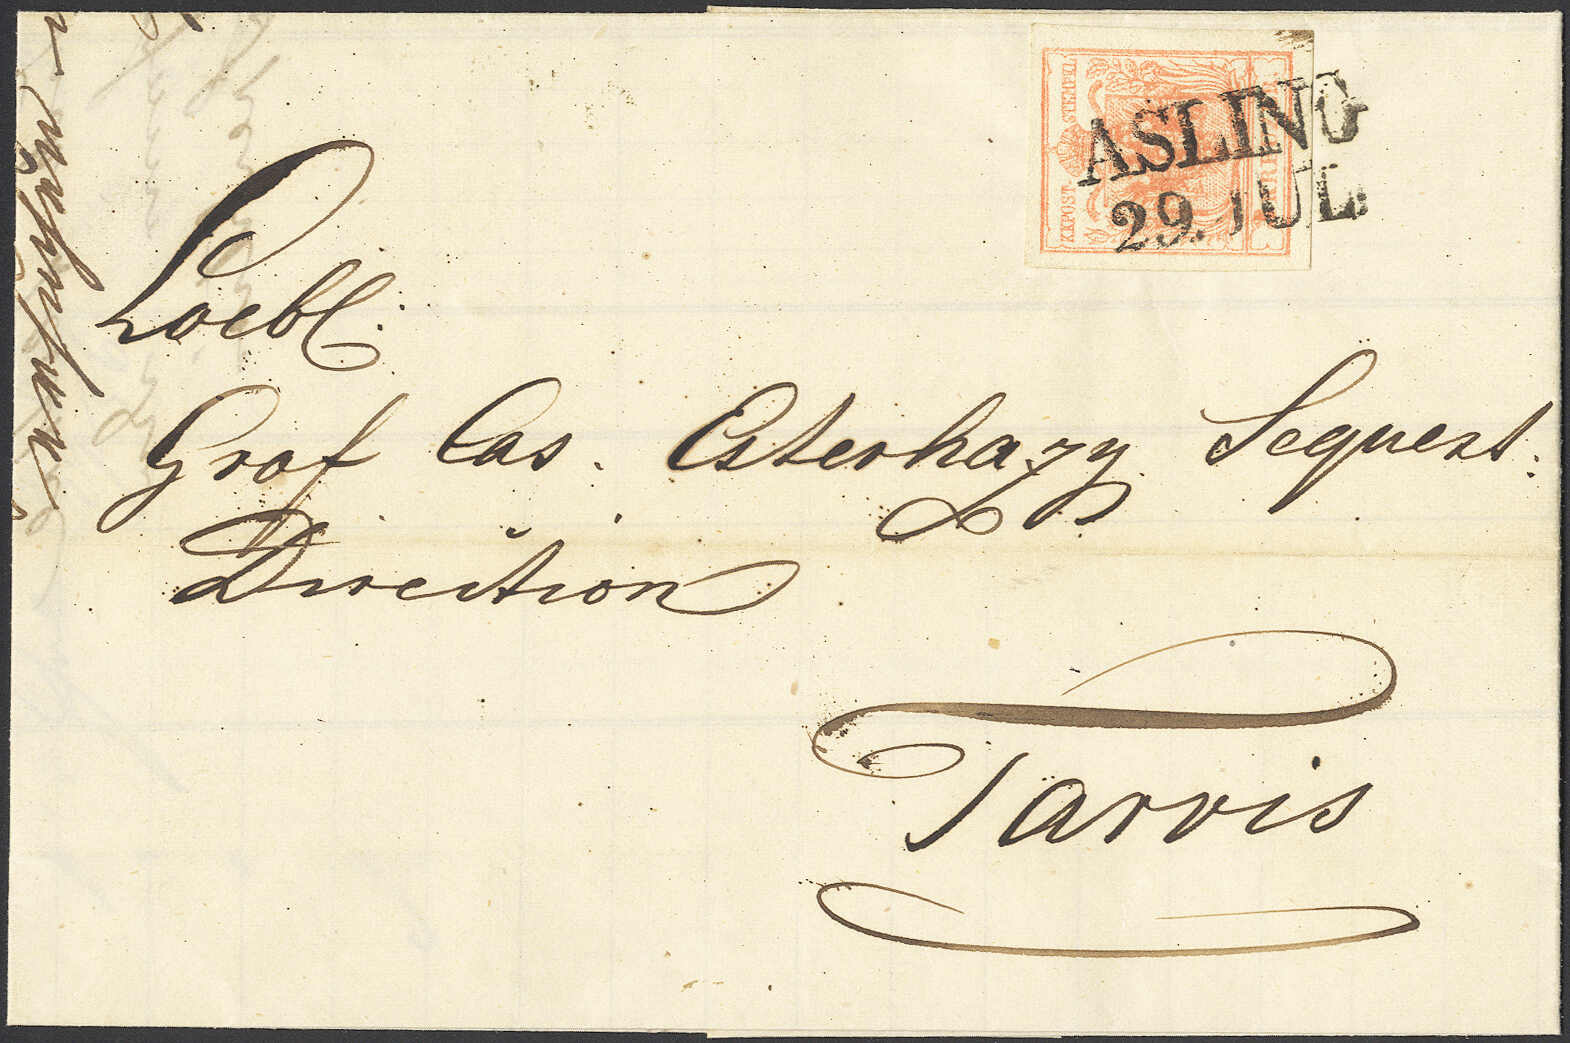 KKPOST-STEMPEL
ASLING
29. JUL.
Loebl:
Graf Cas. Esterhazy Sequest.
Direction
Tarvis